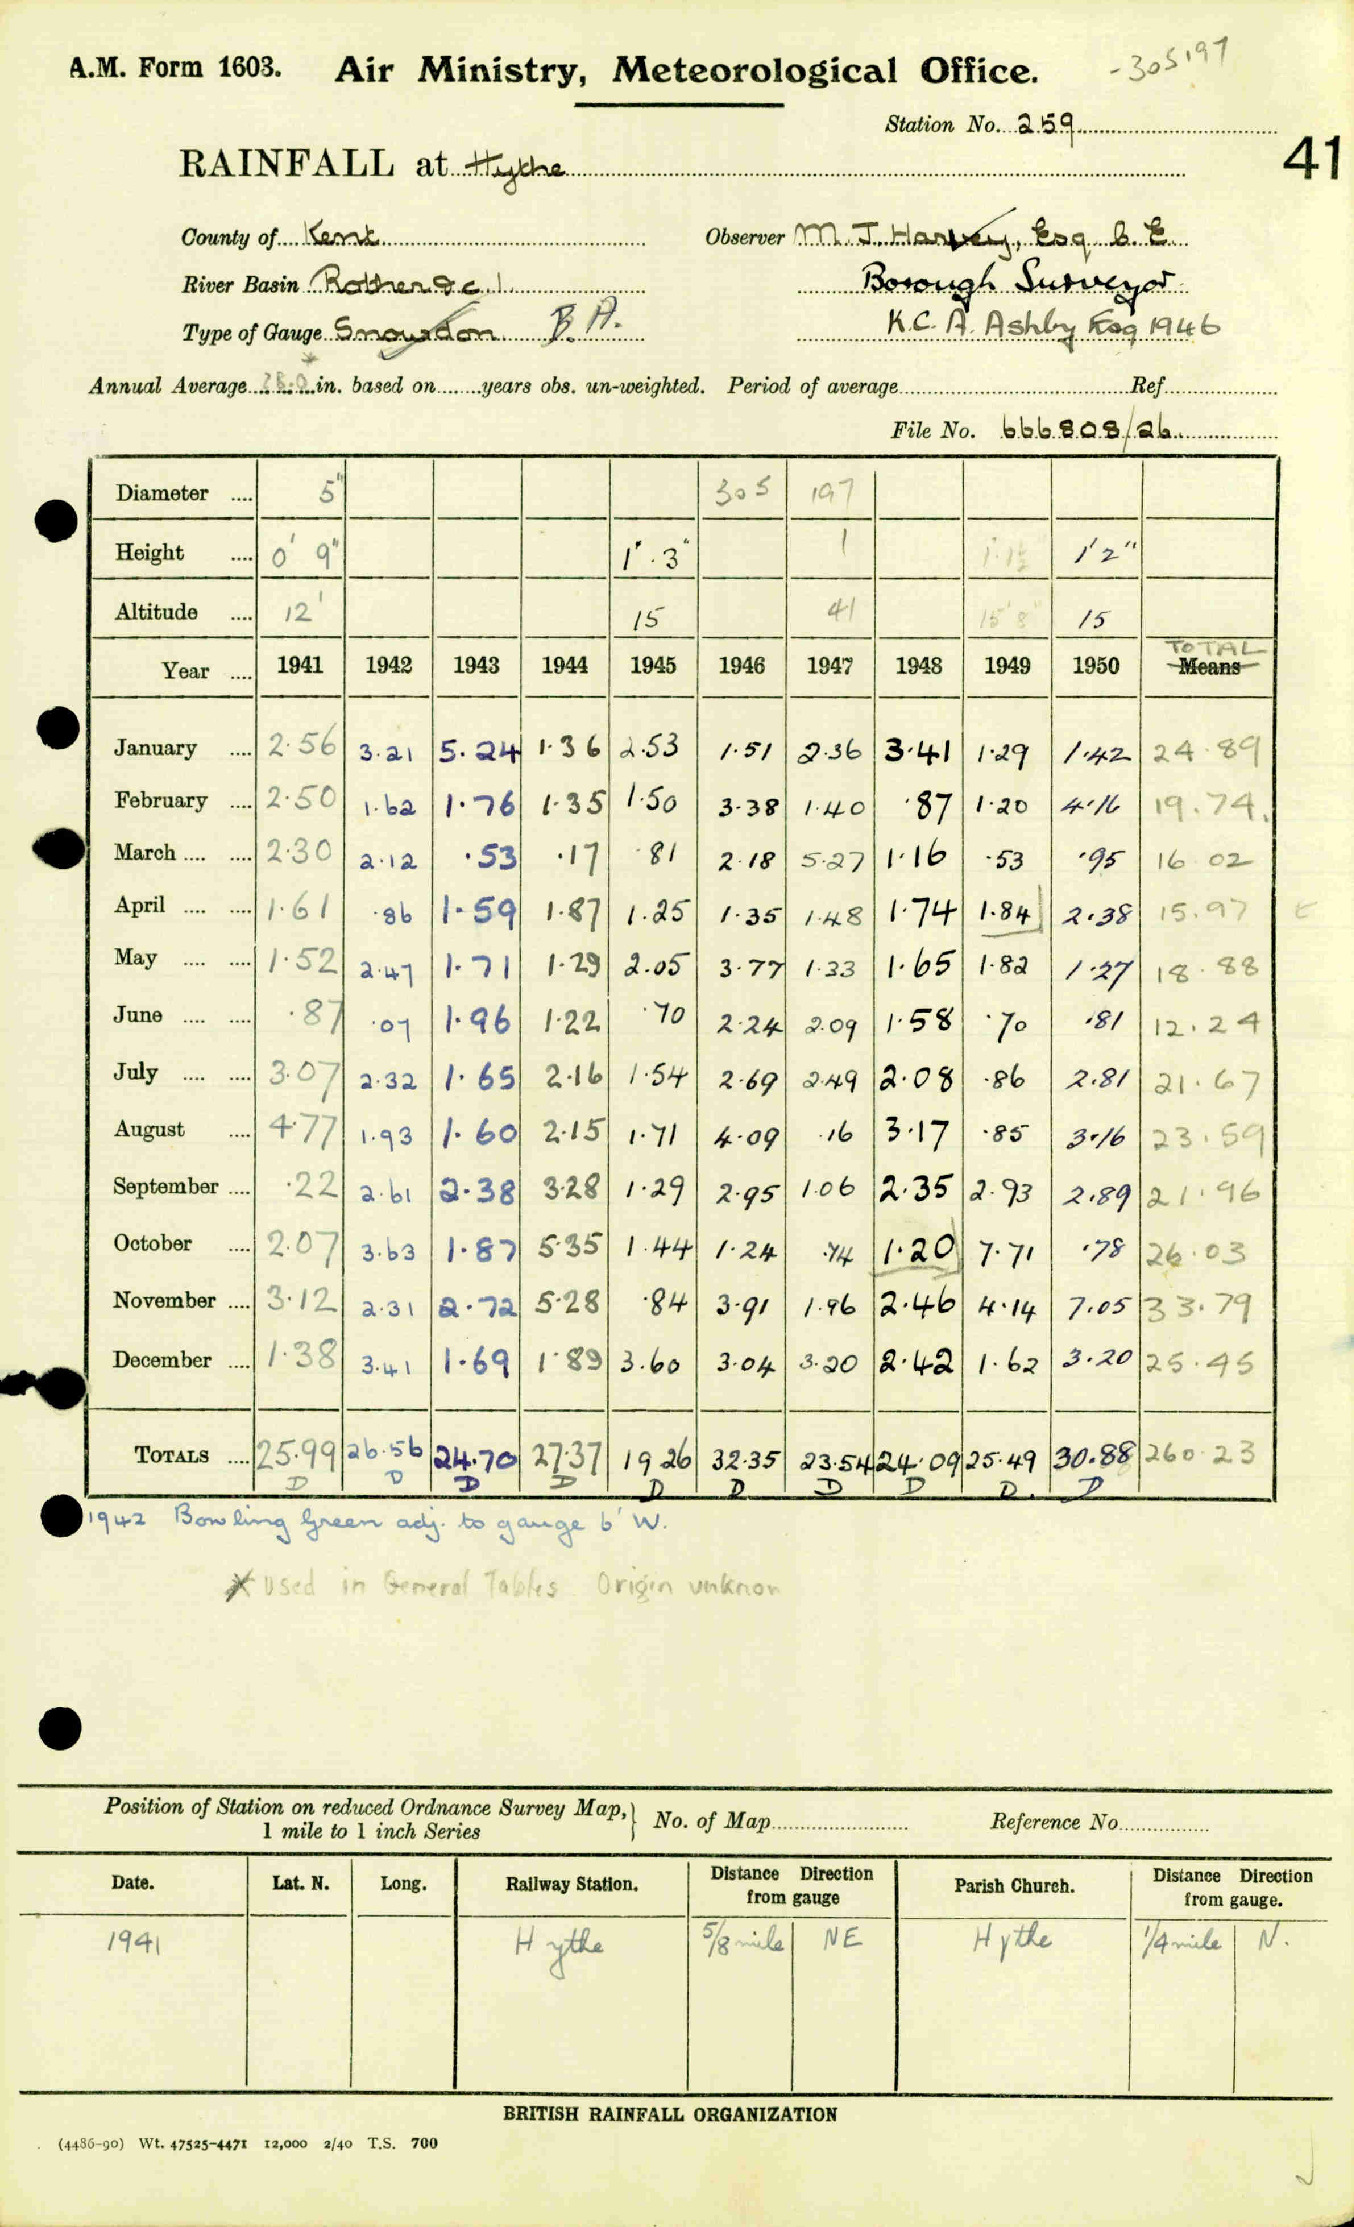 A.M. Form 1603. Air Ministry, Meteorological Office. -305197
Station No. 259
41
RAINFALL at Hythe
County of Kent Observer M. J. Harvey, Esq. C. E.
River Basin Rother &c 1 Borough Surveyor
Type of Gauge Snowdon B.A. K.C. A. Ashby Esq 1946
Annual Average 28.0 * in. based on years obs. un-weighted. Period of average Ref.
File No. 666808/26
Diameter .... 5" 305 197
Height .... 0' 9" 1' . 3" 1 1' 1½" 1' 2"
Altitude .... 12' 15 41 15' 8" 15
TOTAL
Year .... 1941 1942 1943 1944 1945 1946 1947 1948 1949 1950 Means
January .... 2.56 3.21 5.24 1.36 2.53 1.51 2.36 3.41 1.29 1.42 24.89
February .... 2.50 1.62 1.76 1.35 1.50 3.38 1.40 .87 1.20 4.16 19.74
March .... .... 2.30 2.12 .53 .17 .81 2.18 5.27 1.16 .53 .95 16 02
April .... .... 1.61 .86 1.59 1.87 1.25 1.35 1.48 1.74 1.84 2.38 15.97
May .... .... 1.52 2.47 1.71 1.29 2.05 3.77 1.33 1.65 1.82 1.27 18.88
June .... .... .87 .07 1.96 1.22 .70 2.24 2.09 1.58 .70 .81 12.24
July .... .... 3.07 2.32 1.65 2.16 1.54 2.69 2.49 2.08 .86 2.81 21.67
August .... 4.77 1.93 1.60 2.15 1.71 4.09 .16 3.17 .85 3.16 23.59
September .... .22 2.61 2.38 3.28 1.29 2.95 1.06 2.35 2.93 2.89 21.96
October .... 2.07 3.63 1.87 5.35 1.44 1.24 .74 1.20 7.71 .78 26.03
November .... 3.12 2.31 2.72 5.28 .84 3.91 1.96 2.46 4.14 7.05 33.79
December .... 1.38 3.41 1.69 1.89 3.60 3.04 3.20 2.42 1.62 3.20 25.45
TOTALS .... 25.99 26.56 24.70 27.37 19.26 32.35 23.54 24.09 25.49 30.88 260.23
D D D D D D D D D. D
1942 Bowling Green adj. to gauge 6' W.
* Used in General Tables Origin unknon
Position of Station on reduced Ordnance Survey Map,} No. of Map Reference No
1 mile to 1 inch Series
Date. Lat. N. Long. Railway Station. Distance Direction from gauge Parish Church. Distance Direction from gauge.
1941 Hythe 5/8 mile NE Hythe 1/4 mile N.
BRITISH RAINFALL ORGANIZATION
(4486-90) Wt. 47525-4471 12,000 2/40 T.S. 700